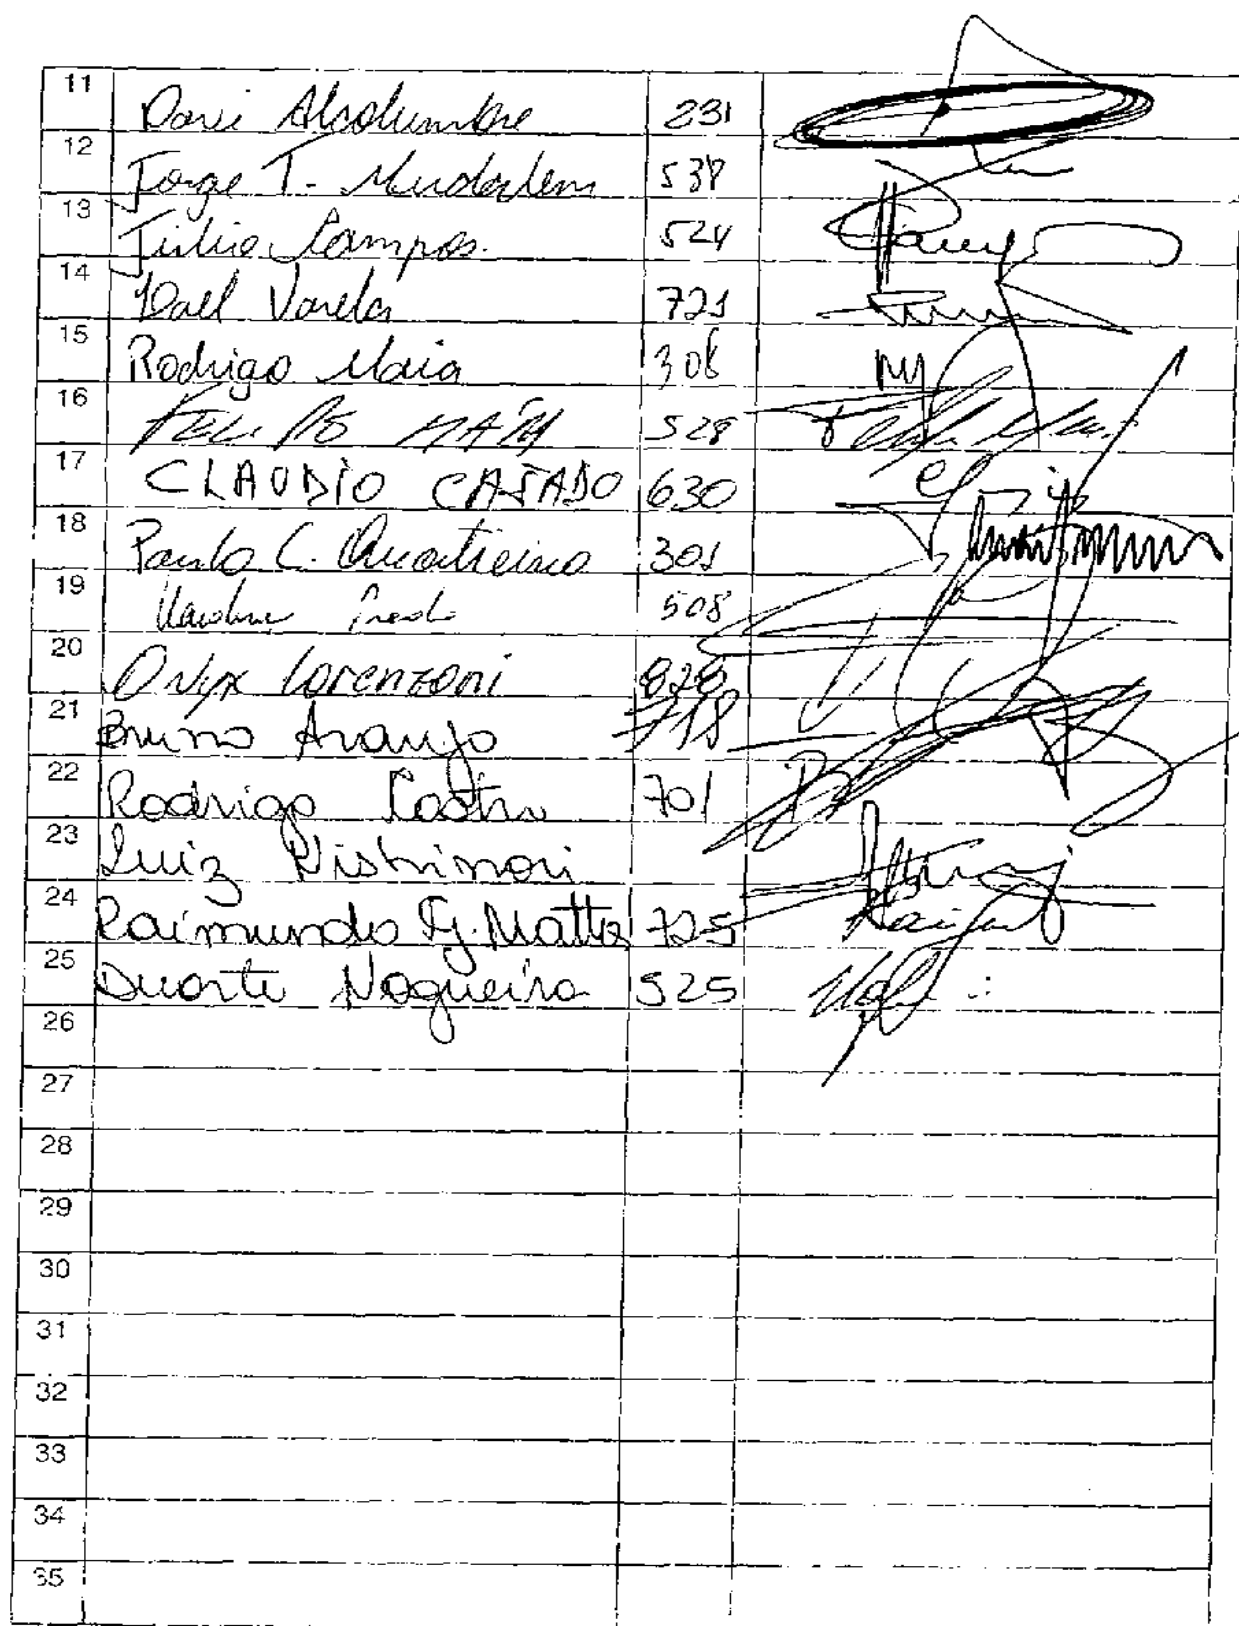 11 Davi Alcolumbre 231
12 Jorge T. Mudalem 538
13 Júlio Campos. 524
14 Lael Varella 721
15 Rodrigo Maia 308
16 FELIPE MAIA 528
17 CLAUDIO CAJADO 630
18 Paulo C. Quartiero 301
19 508
20 Onyx Lorenzoni 828
21 Bruno Araujo 718
22 Rodrigo Castro 701
23 Luiz Nishimori
24 Raimundo G. Mattos 725
25 Duarte Nogueira 525
26
27
28
29
30
31
32
33
34
35